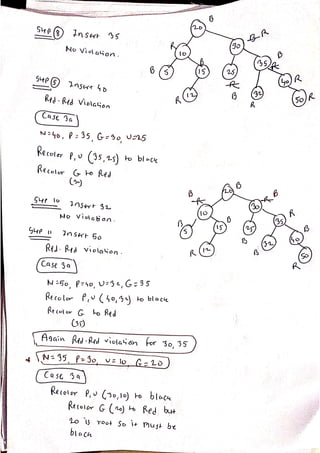 Step 8 Insert 35
No Violation.
Step 9 Insert 40
Red-Red Violation
Case 3a
N=40, P=35, G=30, U=25
Recolor P,U (35,25) to black
Recolor G to Red
(30)
Step 10 Insert 32
No Violation.
Step 11 Insert 50
Red-Red Violation.
Case 3a
N=50 P=40, U=32, G=35
Recolor P,U (40,32) to black
Recolor G to Red
(35)
Again Red-Red violation for 30, 35
N=35 P=30, U=10, G=20
Case 3a
Recolor P,U (30,10) to black
Recolor G (20) to Red but
20 is root so it must be
black
B
20
R
10
B R
30
B
5
B
15
R
12
R
25
B
B
35
R
R
40
32
B
50
R
B
20
B
R
10
B
R
30
B
5
B
15
R
12
25
B
R
35
B
32
B
50
R